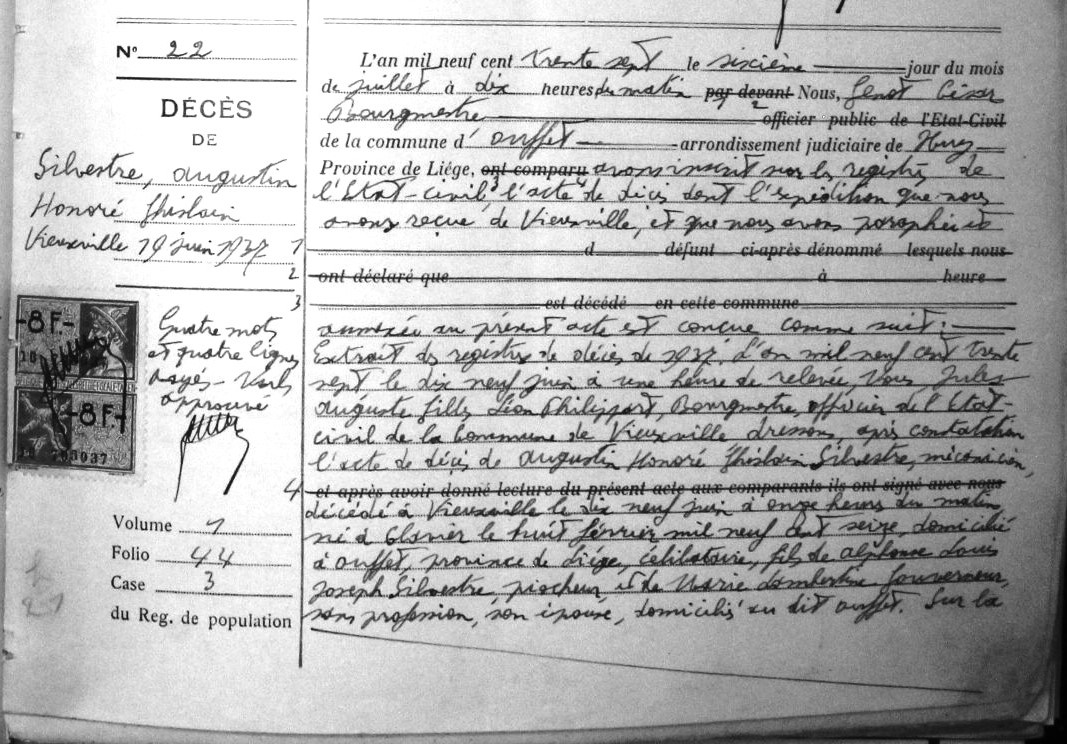 N° 22
DÉCÈS
DE
Silvestre, Augustin
Honoré Ghislain
Vieuxville 19 juin 1937 1
2
3
8F
8F
Quatre mots
et quatre lignes
rayés - nuls
approuvé
4
Volume 1
Folio 44
Case 3
du Reg. de population
L'an mil neuf cent trente sept le sixième jour du mois
de juillet à dix heures du matin par devant Nous, Genot César
Bourgmestre officier public de l'Etat-Civil
de la commune d'Ouffet arrondissement judiciaire de Huy
Province de Liége, ont comparu avons inscrit sur les registres de
l'Etat-civil l'acte de décès dont l'expédition que nous
avons reçue de Vieuxville, et que nous avons paraphée et
d défunt ci-après dénommé lesquels nous
ont déclaré que à heure
est décédé en cette commune
annexée au présent acte est conçue comme suit:
Extrait des registres de décès de 1937. L'an mil neuf cent trente
sept le dix neuf juin à une heure de relevée, Nous Jules
Auguste Léon Philippart, Bourgmestre, officier de l'Etat-
civil de la Commune de Vieuxville dressons, après constatation
l'acte de décès de Augustin Honoré Ghislain Silvestre, mécanicien,
et après avoir donné lecture du présent acte aux comparants ils ont signé avec nous
décédé à Vieuxville le dix neuf juin à onze heures du matin
né à Clavier le huit février mil neuf cent seize, domicilié
à Ouffet, province de Liége, célibataire, fils de Alphonse Louis
Joseph Silvestre, piocheur, et de Marie Lambertine Gouverneur,
sans profession, son épouse, domiciliés au dit Ouffet. Sur la